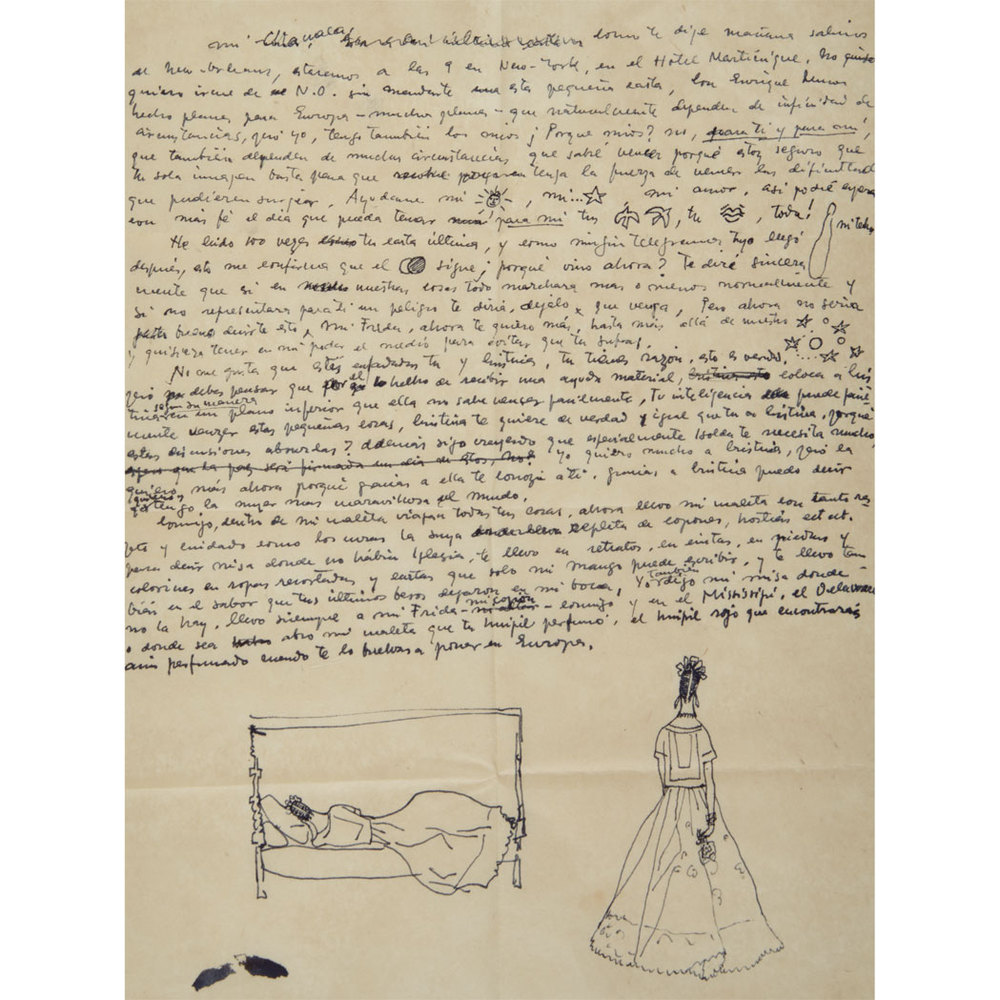 mi Chiquita, como te dije mañana salimos
de New-Orleans, estaremos a las 9 en New-York, en el Hotel Martinique. No
quiero irme de N.O. sin mandarte esta pequeña carta, Con Enrique hemos
hecho planes para Europa – muchos planes – que naturalmente dependen de infinidad de
circunstancias, pero yo, tengo también los mios ¡ Porque mios? no, para ti y para mi,
que también dependen de muchas circunstancias que sabré vencer porqué estoy seguro que
tu sola imagen basta para que tenga la fuerza de vencer las dificultades
que pudieran surgir. Ayudame mi , mi... mi amor, asi podré esperar
con más fé el día que pueda tener para mi tus , tu , toda!
mi
He leido 100 veces tu carta última, y como ningún telegrama tuyo llegó
después, esto me confirma que el sigue; porqué vino ahora? te diré sincera
mente que si en nuestras cosas todo marchara mas o menos normalmente y
si no representara para ti un peligro te diria, dejalo, que venga, Pero ahora no seria
bueno decirte esto, Mi Frida, ahora te quiero más, hasta más allá de nuestro
y quisiera tener en mi poder el medio para evitar que tu sufras.
No me gusta que estés enfadadas tu y Cristina, tu tienes razón, esto es verdad,
peró debes pensar que el hecho de recibir una ayuda material, coloca a Cris
según su manera
tina en un plano inferior que ella no sabe vencer facilmente, tu inteligencia puede facil
mente vencer estas pequeñas cosas, Cristina te quiere de verdad y igual que tu a Cristina, porqué
estas discusiones absurdas? además sigo creyendo que especialmente Isolda te necesita mucho,
Yo quiero mucho a Cristina, peró la
quiero más ahora porqué gracias a ella te conozco a ti. gracias a Cristina puedo decir
tengo la mujer mas maravillosa del mundo.
Conmigo, dentro de mi maleta viajan todas tus cosas, ahora llevo mi maleta con tanto res
peto y cuidado como los curas la suya repleta de copones, hostias ect ect.
para decir misa donde no habia Iglesia, te llevo en retratos, en cintas, en piedras y
colorines en ropas recortadas y cartas que solo mi mango puede escribir, y te llevo tam
bién en el sabor que tus últimos besos dejaron en mi boca, Yo también digo mi misa donde
no la hay, llevo siempre a mi Frida – – conmigo y en el Mississipi, el Delaware
o donde sea abro mi maleta que tu huipil perfumó, el huipil rojo que encontrarás
aún perfumado cuando te lo vuelvas a poner en Europa.